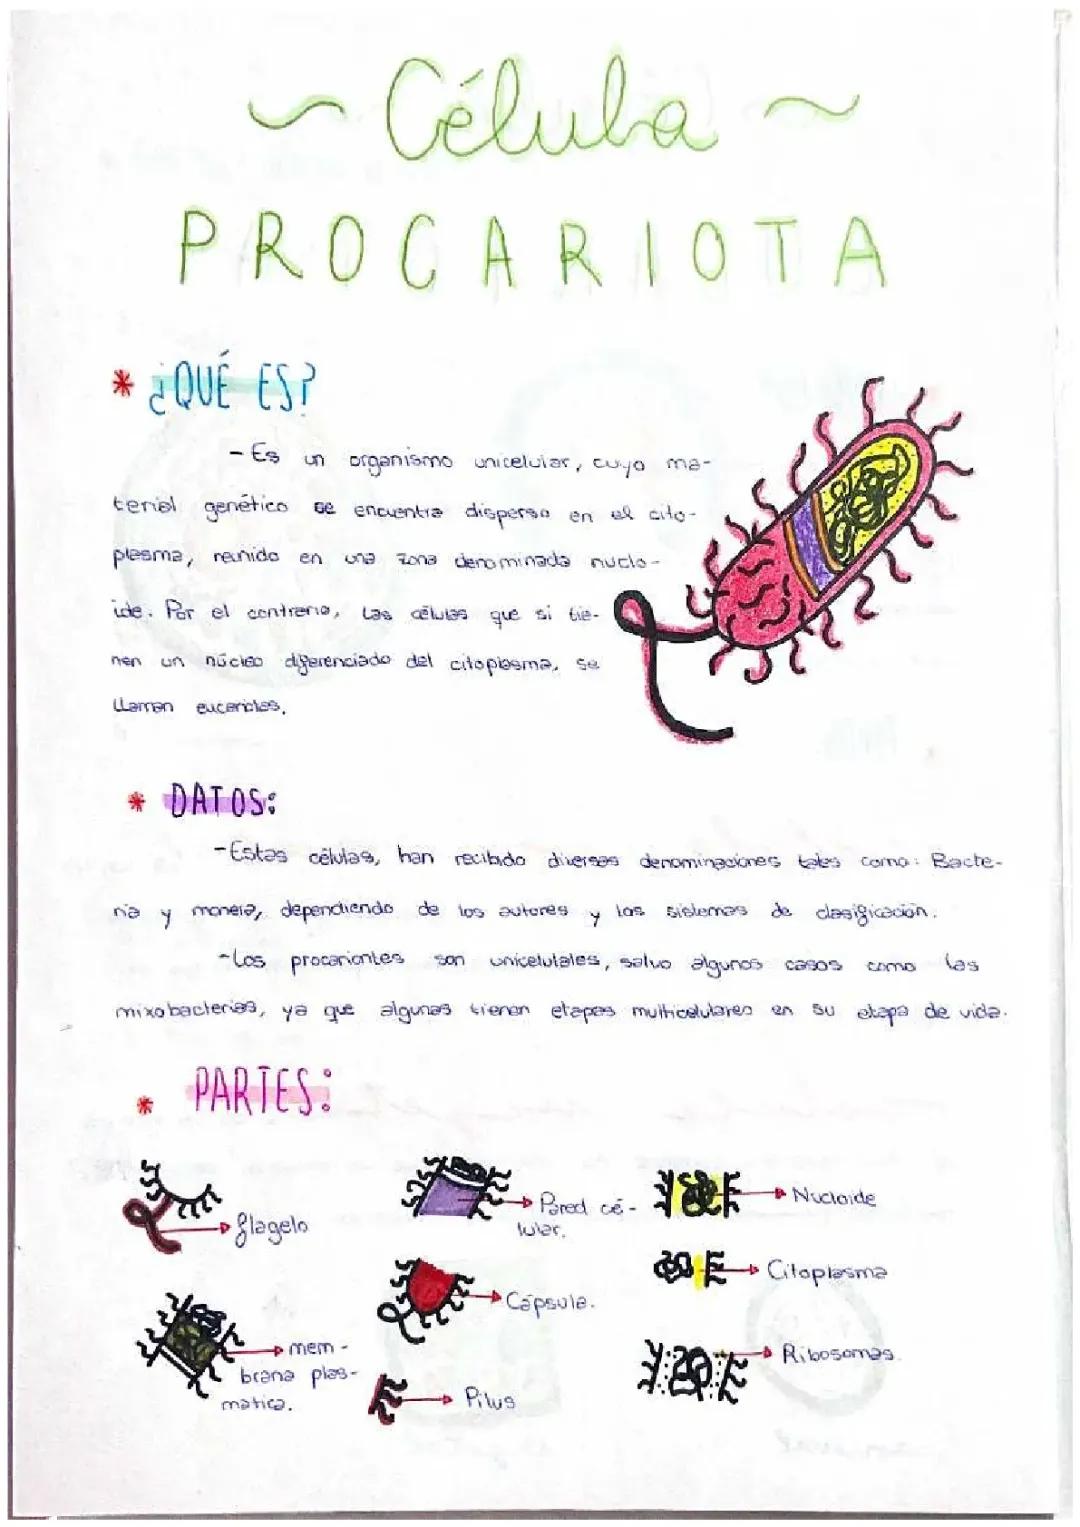 ~ Célula ~
PROCARIOTA
* ¿QUÉ ES?
- Es un organismo unicelular, cuyo ma-
terial genético se encuentra disperso en el cito-
plasma, reunido en una zona denominada nuclo-
ide. Por el contrario, las células que si tie-
nen un núcleo diferenciado del citoplasma, se
llaman eucariotas.
* DATOS:
- Estas células, han recibido diversas denominaciones tales como: Bacte-
ria y monera, dependiendo de los autores y los sistemas de clasificación.
- Los procariontes son unicelulales, salvo algunos casos como las
mixobacterias, ya que algunas tienen etapas multicelulares en su etapa de vida.
* PARTES:
flagelo
Pared cé-
lular.
Nucloide
Citoplasma
Cápsula.
mem-
brana plas-
matica.
Ribosomas.
Pilus